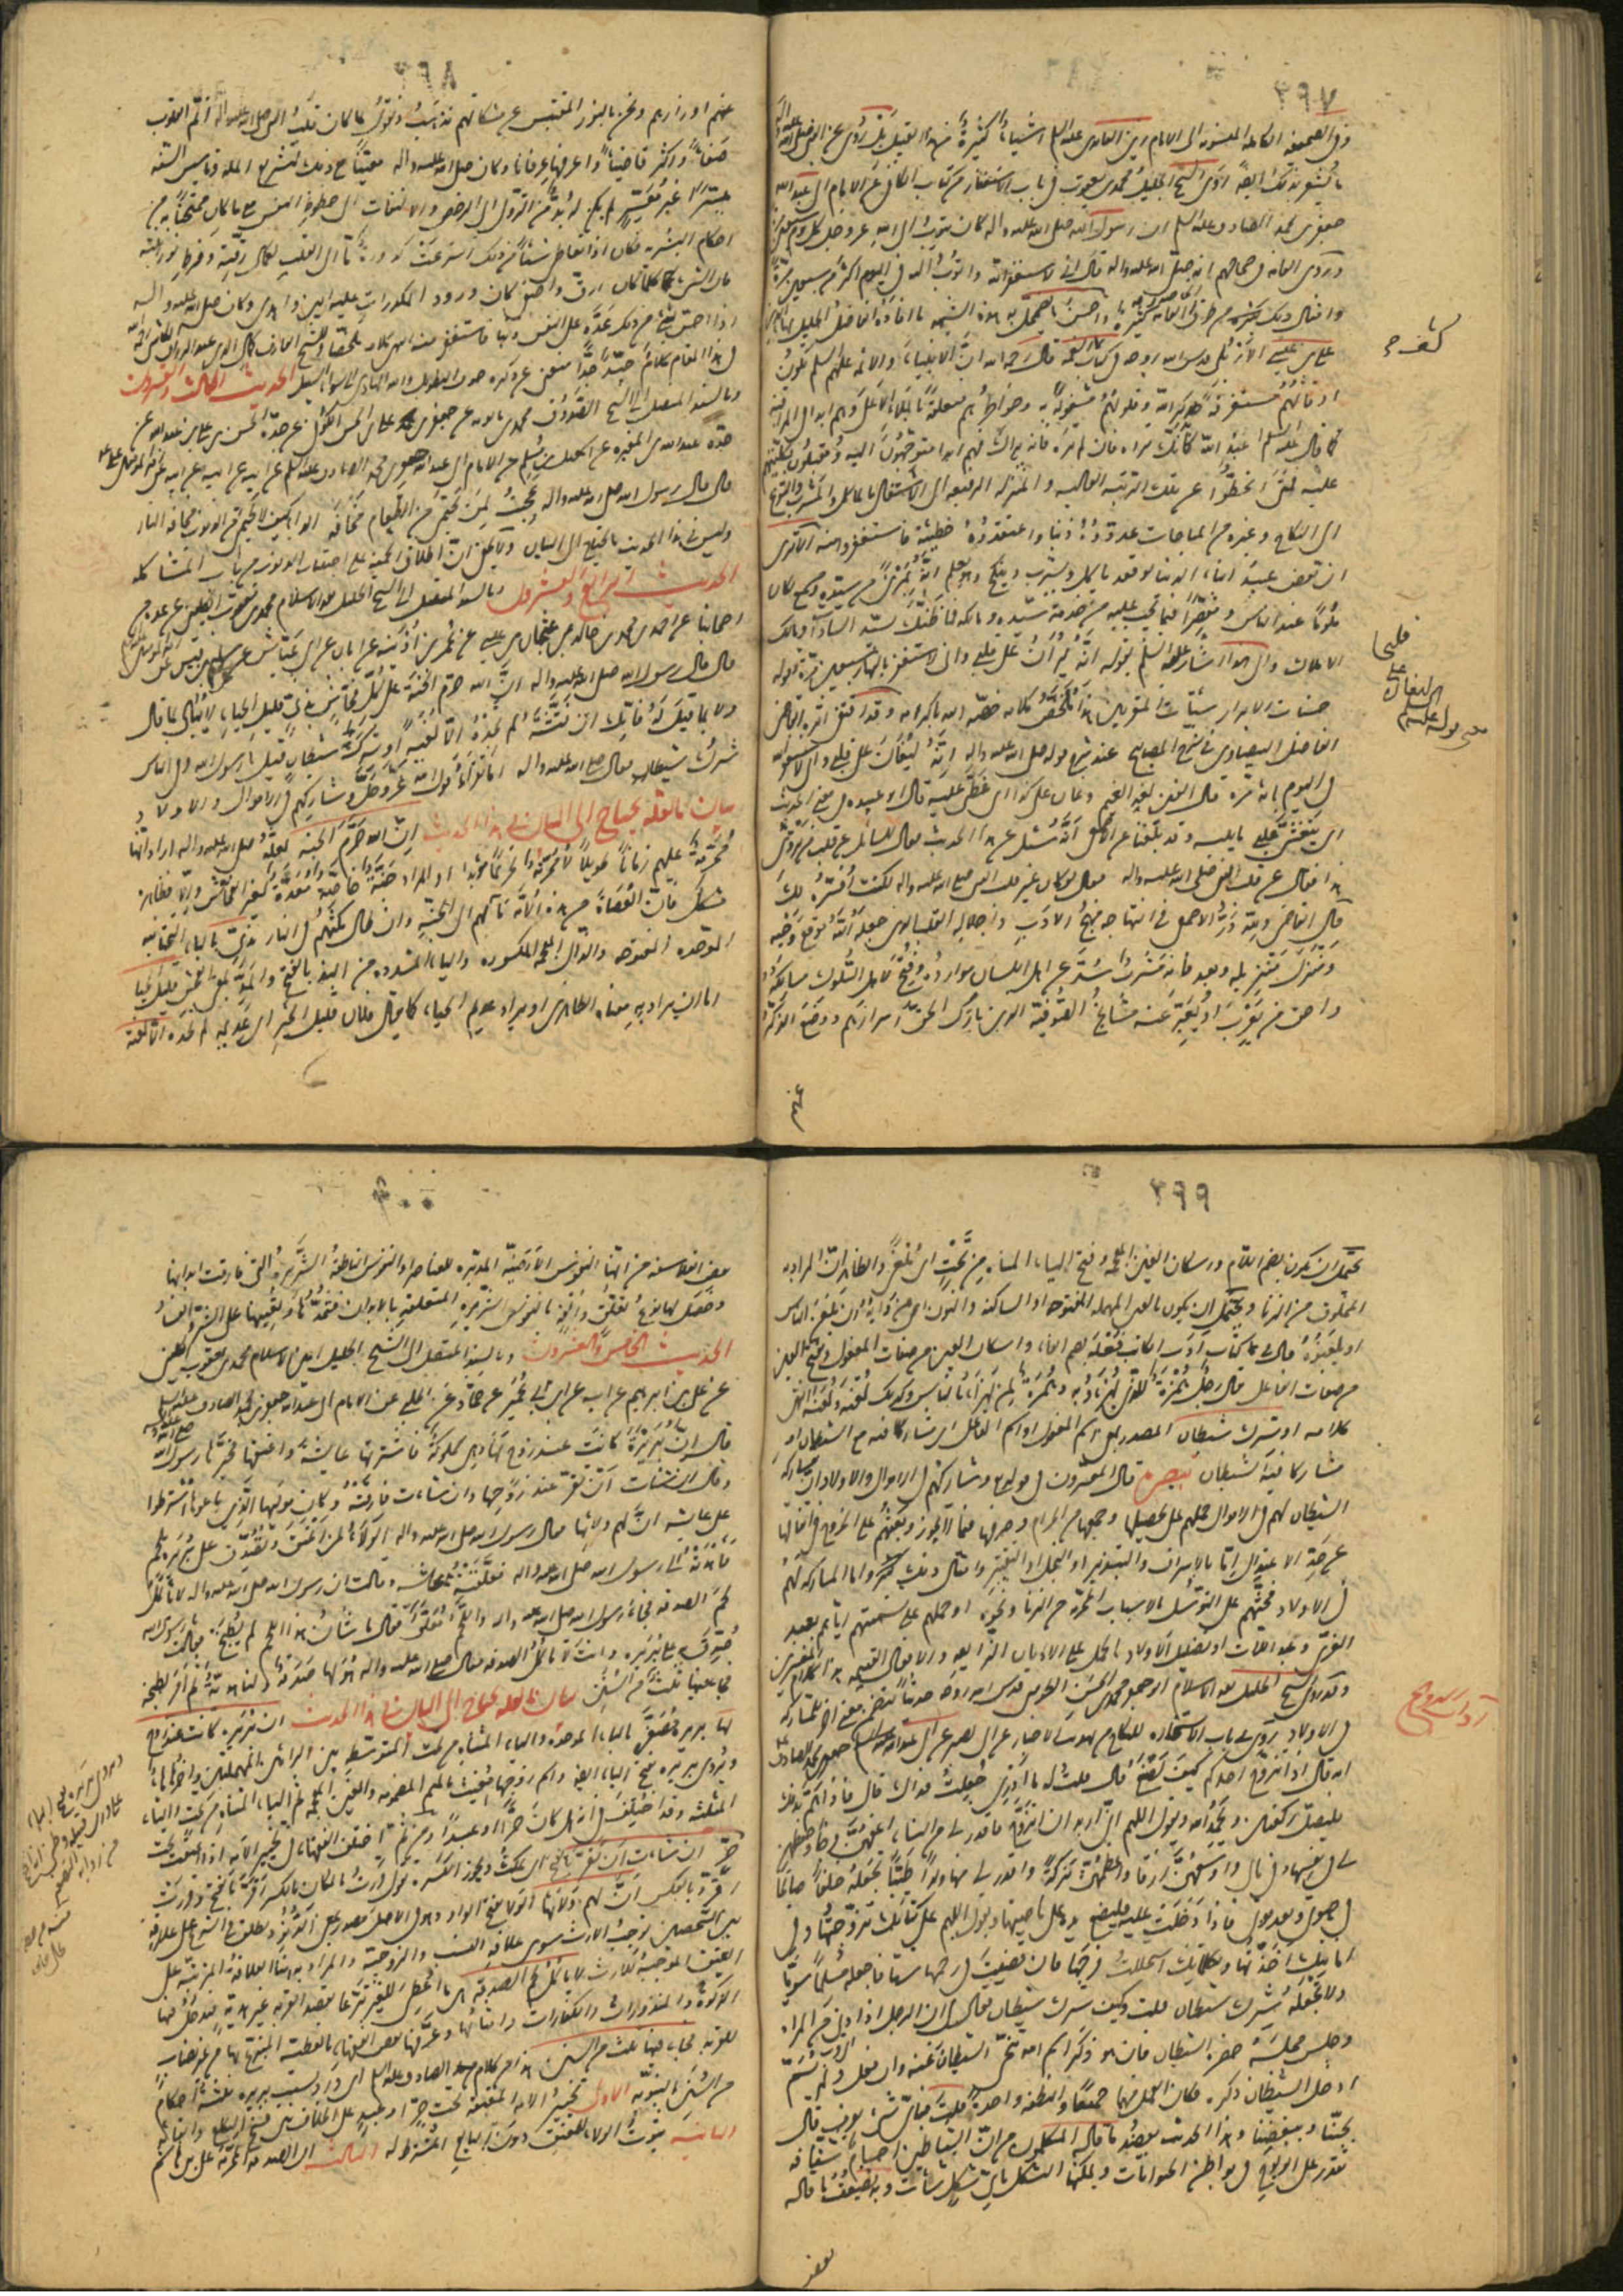 ٣٩٧
وفى الصحيفة الكاملة المنسوبة الى الامام زين العابدين عليه السلم اشياء كثيرة من هذا القبيل بل روى عن النبى صلى الله عليه واله
ما يشعر بذلك ايضا روى الشيخ الجليل محمد بن يعقوب فى باب الاستغفار من كتاب الكافى عن الامام ابى عبد الله
جعفر بن محمد الصادق عليه السلم ان رسول الله صلى الله عليه واله كان يتوب الى الله عز وجل كل يوم سبعين
وروى العامة فى صحاحهم انه صلى الله عليه واله قال انى لاستغفر الله واتوب اليه فى اليوم اكثر من سبعين مرة
وامثال ذلك من طرق العامة كثيرة واحسن ما يضمحل به هذه الشبهة ما افاده الفاضل الجليل بهاء الدين
على بن عيسى الاربلى قدس الله روحه فى كتاب كشف الغمة قال رحمه الله ان الانبياء والائمة عليهم السلم تكون
اوقاتهم مستغرقة بذكر الله وقلوبهم مشغولة به وخواطرهم متعلقة بالملاء الاعلى وهم ابدا فى المراقبة
كما قال عليه السلم اعبد الله كانك تراه فان لم تره فانه يراك فهم ابدا متوجهون اليه ومقبلون بكليتهم
عليه فمتى انحطوا عن تلك الرتبة العالية والمنزلة الرفيعة الى الاشتغال بالماكل والمشرب والتفرغ
الى النكاح وغيره من المباحات عدوه ذنبا واعتقدوه خطيئة فاستغفروا منه الا ترى
ان بعض عبيد ابناء الدنيا لو قعد ياكل ويشرب وينكح وهو يعلم انه بمرئ من سيده ومسمع لكان
ملوما عند الناس ومقصرا فيما يجب عليه من خدمة سيده ومالكه فما ظنك بسيد السادات ومالك
الاملاك والى هذا اشار عليه السلم بقوله انه ليران على قلبى وانى لاستغفر بالنهار سبعين مرة وقوله
حسنات الابرار سيئات المقربين هذا ملخص كلامه خصه الله باكرامه وقد اقتفى اثره القاضى
الفاضل البيضاوى فى شرح المصابيح عند شرح قوله صلى الله عليه واله انه ليغان على قلبى وانى لاستغفر الله
فى اليوم مائة مرة قال الغين لغة الغيم وغان على كذا اى غطى عليه قال ابو عبيدة فى معنى الحديث
اى يتغشى قلبى ما يلبسه وقد بلغنا عن الاصمعى انه سئل عن هذا الحديث فقال للسائل عن قلب من تروى
هذا فقال عن قلب النبى صلى الله عليه واله فقال لو كان غير قلب النبى صلى الله عليه واله لكنت افسره لك
قال القاضى ولله در الاصمعى فى انتهاجه منهج الادب واجلاله القلب الذى جعله الله موقع وحيه
ومنزل تنزيله وبعد فانه مشرب سد عن اهل اللسان موارده وفتح لاهل السلوك مسالكه
واحق من يعرب او يعبر عنه مشايخ الصوفية الذين بارك الحق اسرارهم ووضع الذكر
عنهم
كشف
قلبى
٨٩٣
عنهم اوزارهم ونحن بالنور المقتبس من مشكاتهم نذهب ونقول لما كان قلب النبى صلى الله عليه واله اتم القلوب
صفاء واكثر ضياء واعرفها عرفانا وكان صلى الله عليه واله معنيا مع ذلك بتشريع الملة وتاسيس السنة
ميسرا غير معسر لم يكن له بد من النزول الى الرخص والالتفات الى حظوظ النفس مع ما كان ممتحنا به من
احكام البشرية فكان اذا تعاطى شيئا من ذلك اسرعت كدورة ما الى القلب لكمال رقته وفرط نورانيته
فان الشىء كلما كان ارق واصفى كان ورود المكدرات عليه ابين واهدى وكان صلى الله عليه واله
اذا احس بشىء من ذلك عده على النفس ذنبا فاستغفر منه انتهى كلامه ملخصا
فى هذا المقام كلام جيد جدا منعنى عن ذكره خوف التطويل والله الهادى الى سواء السبيل الحديث الثالث والعشرون
وبالسند المتصل الى الشيخ الصدوق محمد بن بابويه عن جعفر بن على بن الحسن الكوفى عن جده الحسن بن على بن عبد الله عن
جده عبد الله بن المغيرة عن اسمعيل بن مسلم عن الامام ابى عبد الله جعفر بن محمد الصادق عليه السلم عن ابيه عن ابيه
قال قال رسول الله صلى الله عليه واله عجبت لمن يحتمى من الطعام مخافة الداء كيف لا يحتمى من الذنوب مخافة النار
وليس فى هذا الحديث ما يحتاج الى البيان ولا يخفى ان اطلاق الحمية على اجتناب الذنوب من باب المشاكلة
الحديث الرابع والعشرون وبالسند المتصل الى الشيخ الجليل ثقة الاسلام محمد بن يعقوب الكلينى عن عدة من
اصحابنا عن احمد بن محمد بن خالد عن عثمان بن عيسى عن عمر بن اذينة عن ابان بن ابى عياش عن سليم بن قيس عن
قال قال رسول الله صلى الله عليه واله ان الله حرم الجنة على كل فحاش بذى قليل الحياء لا يبالى بما قال
ولا بما قيل له فانك ان فتشته لم تجده الا لغية او شرك شيطان قيل يا رسول الله وفى الناس
شرك شيطان فقال صلى الله عليه واله اما تقرا قول الله عز وجل وشاركهم فى الاموال والاولاد
بيان ما لعله يحتاج الى البيان فى هذا الحديث ان الله حرم الجنة لعله صلى الله عليه واله اراد انها
محرمة عليهم زمانا طويلا لا محرمة تحريما مؤبدا او المراد جنة خاصة معدة لغير الفحاش والا فظاهره
مشكل فان العصاة من هذه الامة مآلهم الى الجنة وان طال مكثهم فى النار بذى بالباء التحتانية
الموحدة المفتوحة والذال المعجمة المكسورة والياء المشددة من البذاء بالفتح والمد بمعنى الفحش قليل الحياء
اما ان يراد به معناه الظاهرى او يراد عديم الحياء كما يقال فلان قليل الخير اى عديمه لم تجده الا لغية
٣٩٩
يحتمل ان يكون بضم اللام واسكان الغين المعجمة وفتح الياء المثناة من تحت اى ملغى والظاهر ان المراد به
المخلوق من الزنا ويحتمل ان يكون بالعين المهملة المفتوحة او الساكنة والنون اى من دابه ان يلعن الناس
او يلعنوه قال فى كتاب ادب الكاتب فعلة بضم الفاء واسكان العين من صفات المفعول وبفتح العين
من صفات الفاعل يقال رجل همزة للذى يهزا به وهمزة لمن يهزا بالناس وكذلك لعنة ولعنة انتهى
كلامه او شرك شيطان المصدر بمعنى اسم المفعول او اسم الفاعل اى مشاركا فيه مع الشيطان او
مشاركا فيه الشيطان تبصرة قال المفسرون فى قوله تع وشاركهم فى الاموال والاولاد ان مشاركة
الشيطان لهم فى الاموال حملهم على تحصيلها وجمعها من الحرام وصرفها فيما لا يجوز وبعثهم على الخروج فى انفاقها
عن حد الاعتدال اما بالاسراف والتبذير او البخل او التقتير وامثال ذلك واما المشاركة لهم
فى الاولاد فحثهم على التوسل بالاسباب المحرمة من الزنا ونحوه او حملهم على تسميتهم اياهم بعبد
العزى وعبد اللات او تضليل الاولاد بالحمل على الاديان الزائفة والافعال القبيحة هذا كلام المفسرين
وقد روى الشيخ الجليل ابو جعفر محمد بن الحسن الطوسى قدس الله روحه حديثا يتضمن معنى اخر للمشاركة
فى الاولاد روى فى باب الاستخارة للنكاح من تهذيب الاخبار عن ابى بصير عن ابى عبد الله جعفر بن محمد الصادق
انه قال اذا تزوج احدكم كيف يصنع قال قلت له ما ادرى جعلت فداك قال فاذا هم بذلك
فليصل ركعتين ويحمد الله ويقول اللهم انى اريد ان اتزوج فاقدر لى من النساء اعفهن فرجا واحفظهن
لى فى نفسها وفى مالى واوسعهن رزقا واعظمهن بركة واقدر لى منها ولدا طيبا تجعله خلفا صالحا
فى حيوتى وبعد موتى فاذا دخلت عليه فليضع يده على ناصيتها ويقول اللهم على كتابك تزوجتها وفى
امانتك اخذتها وبكلماتك استحللت فرجها فان قضيت فى رحمها شيئا فاجعله مسلما سويا
ولا تجعله شرك شيطان قلت وكيف يكون شرك شيطان فقال ان الرجل اذا دنى من المراة
وجلس مجلسه حضره الشيطان فان هو ذكر اسم الله تنحى الشيطان عنه وان فعل ولم يسم
ادخل الشيطان ذكره فكان العمل منهما جميعا والنطفة واحدة قلت فباى شىء يعرف قال
بحبنا وببغضنا وهذا الحديث يعضد ما قاله المتكلمون من ان الشياطين اجسام شفافة
تقدر على الولوج فى بواطن الحيوانات ويمكنها التشكل باى شكل شاءت وبه يضعف ما قاله
بعض
٤٠٠
بعض الفلاسفة من انها النفوس الارضية المدبرة للعناصر او النفوس الناطقة الشريرة التى فارقت ابدانها
وحصل لها نوع تعلق والفة بالنفوس الشريرة المتعلقة بالابدان فتمدها وتعينها على الشر والفساد
الحديث الخامس والعشرون وبالسند المتصل الى الشيخ الجليل امين الاسلام محمد بن يعقوب الكلينى
عن على بن ابراهيم عن ابيه عن ابن ابى عمير عن حماد عن الحلبى عن الامام ابى عبد الله جعفر بن محمد الصادق عليه السلم
قال ان بريرة كانت عند زوج لها وهى مملوكة فاشترتها عايشة واعتقتها فخيرها رسول الله
وقال ان شاءت ان تقر عند زوجها وان شاءت فارقته وكان مواليها الذين باعوها اشترطوا
على عايشة ان لهم ولاءها فقال رسول الله صلى الله عليه واله الولاء لمن اعتق وتصدق على بريرة بلحم
فاهدته الى رسول الله صلى الله عليه واله فعلقته عايشة وقالت ان رسول الله صلى الله عليه واله لا ياكل
لحم الصدقة فجاء رسول الله صلى الله عليه واله واللحم معلق فقال ما شان هذا اللحم لم يطبخ فقالت يا رسول الله
صدق على بريرة وانت لا تاكل الصدقة فقال صلى الله عليه واله هو لها صدقة ولنا هدية ثم امر بطبخه
فجاء فيها ثلث من السنن بيان ما لعله يحتاج الى البيان فى هذا الحديث ان بريرة كانت عند زوج
لها بريرة مصغر بالباء الموحدة والياء المثناة من تحت المتوسطة بين الرائين المهملتين واخرها هاء
ويروى بريرة بفتح الباء ايضا واسم زوجها مغيث بالميم المضمومة والغين المعجمة ثم الياء المثناة من تحت والثاء
المثلثة وقد اختلف فى انه هل كان حرا او عبدا ومن ثم اختلف الفقهاء فى تخيير الامة اذا اعتقت تحت
حر ان شاءت ان تقر بالفتح اى تمكث ويجوز الكسر تقول قررت بالمكان بالكسر اقر بالفتح وقررت
اقر بالعكس ان لهم ولاءها الولاء بفتح الواو وهو فى الاصل مصدر بمعنى القرب ويطلق فى الشرع على علاقة
بين الشخصين توجب الارث سوى علاقة النسب والزوجية والمراد به هنا العلاقة المترتبة على
العتق الموجبة للارث لا ياكل لحم الصدقة هى ما اعطى للغير تبرعا بقصد القربة غير هدية فتدخل فيها
الزكوة والمنذورات والكفارات وامثالها وعرفها بعض الفقهاء بالعطية المتبرع بها من غير نصاب
للقربة فجاء فيها ثلث من السنن هذا من كلام الصادق عليه السلم اى ورد بسبب بريرة ثلثة احكام
من السنن النبوية الاولى تخيير الامة المعتقة تحت حر او عبد على الخلاف بين فسخ النكاح وابقائه
الثانية ثبوت الولاء للمعتق دون البايع المشترط له الثالثة ان الصدقة المحرمة على بنى هاشم